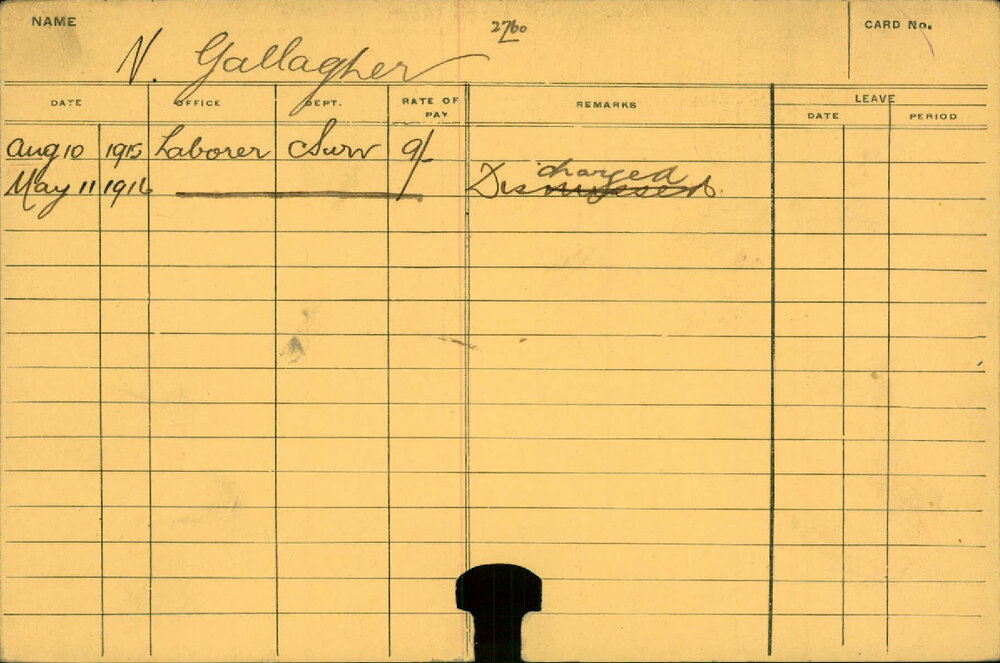 NAME
N. Gallagher
2760
CARD No.
DATE OFFICE DEPT. RATE OF PAY REMARKS LEAVE
DATE PERIOD
Aug 10 1915 Laborer Surv 9/-
May 11 1916 Dismissed charged